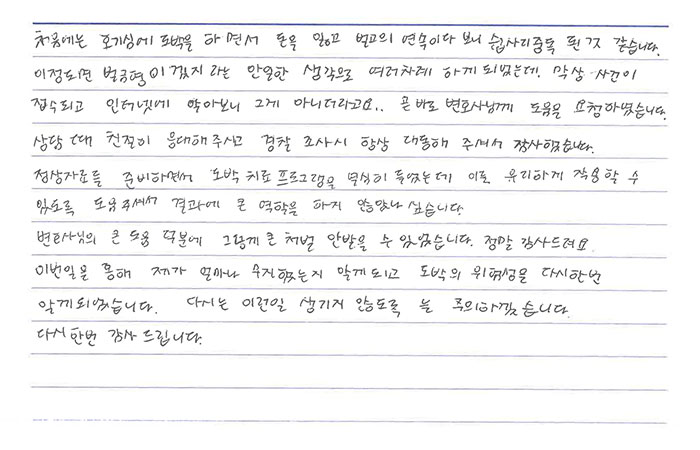 처음에는 호기심에 도박을 하면서 돈을 잃고 벌고의 연속이다 보니 쉽사리중독 된것 같습니다.
이정도면 벌금형이겠지 라는 안일한 생각으로 여러차례 하게되었는데. 막상 사건이
접수되고 인터넷에 알아보니 그게 아니더라고요.. 곧바로 변호사님께 도움을 요청하였습니다.
상담 때 친절히 응대해주시고 경찰 조사시 항상 대동해 주셔서 감사했습니다.
정상자료들 준비하면서 도박 치료 프로그램을 열심히 들었는데 이로 유리하게 작용할 수
있도록 도움주셔서 결과에 큰 역할을 하지 않았나 싶습니다
변호사님의 큰 도움 덕분에 그렇게 큰 처벌 안받을 수 있었습니다. 정말 감사드려요
이번일을 통해 제가 얼마나 무지했는지 알게되고 도박의 위험성을 다시한번
알게되었습니다. 다시는 이런일 생기지 않도록 늘 주의하겠습니다.
다시한번 감사 드립니다.